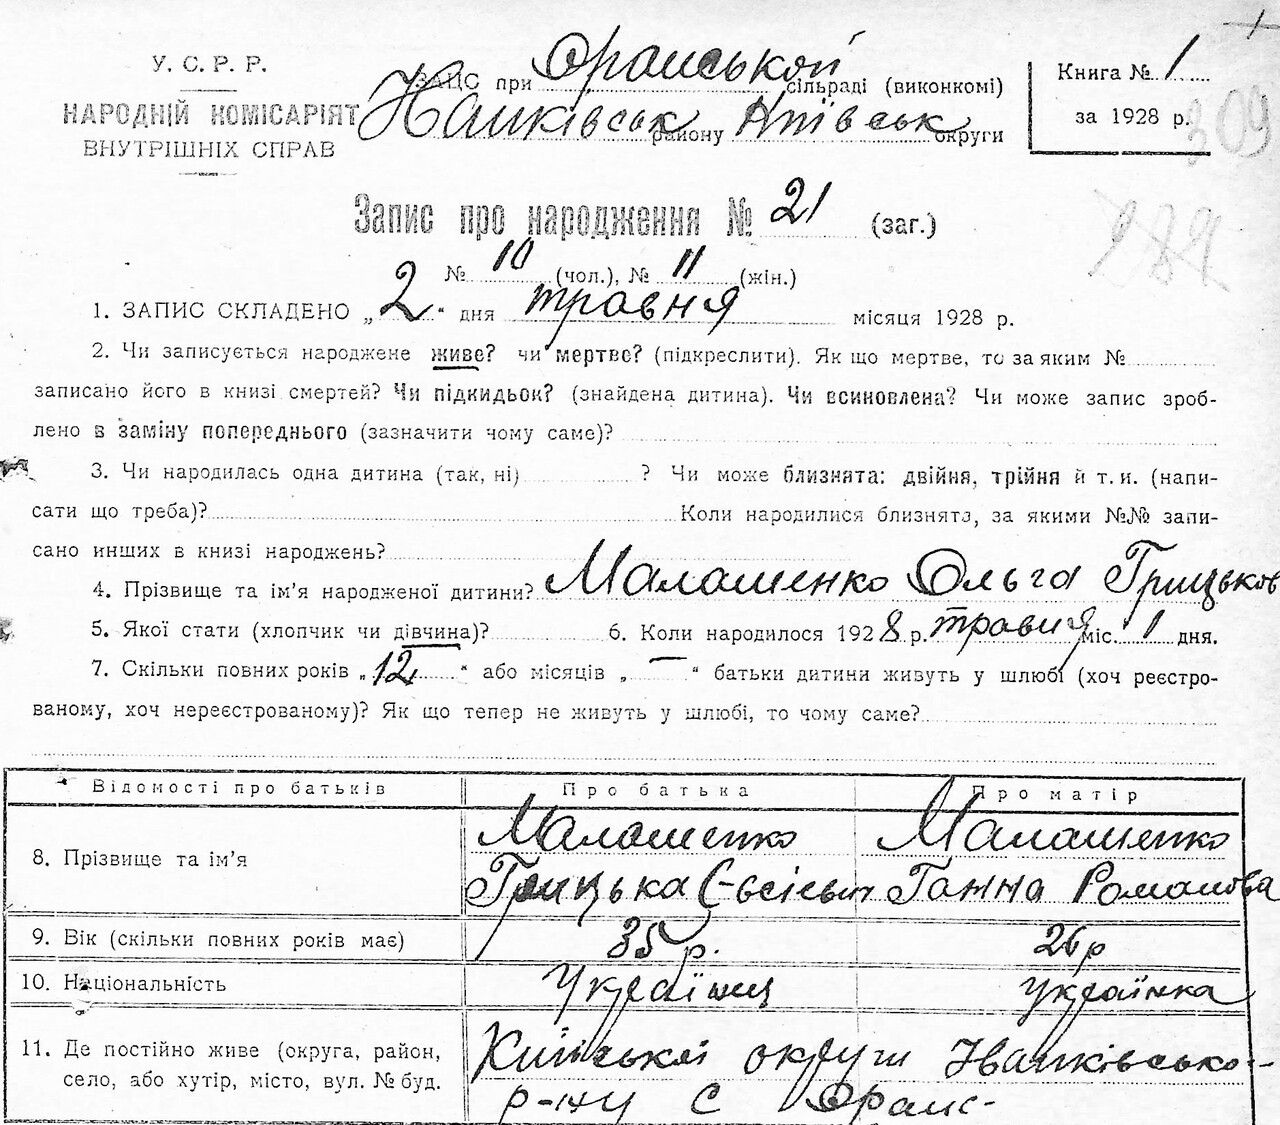 У. С. Р. Р.
НАРОДНІЙ КОМІСАРІЯТ
ВНУТРІШНІХ СПРАВ
ЗАЦС при Оранській сільраді (виконкомі)
району Київськ округи
Книга № 1
за 1928 р.
309
Запис про народження № 21 (заг.)
№ 10 (чол.), № 11 (жін.)
1. ЗАПИС СКЛАДЕНО „2“ дня травня місяця 1928 р.
2. Чи записується народжене живе? чи мертве? (підкреслити). Як що мертве, то за яким №
записано його в книзі смертей? Чи підкидьок? (знайдена дитина). Чи всиновлена? Чи може запис зроб-
лено в заміну попереднього (зазначити чому саме)?
3. Чи народилась одна дитина (так, ні) ? Чи може близнята: двійня, трійня й т. и. (напи-
сати що треба)? Коли народилися близнята, за якими №№ запи-
сано инших в книзі народжень?
4. Прізвище та ім’я народженої дитини? Малашенко Ольга Грицьков
5. Якої стати (хлопчик чи дівчина)? 6. Коли народилося 1928 р. травня міс. 1 дня.
7. Скільки повних років „12“ або місяців „—“ батьки дитини живуть у шлюбі (хоч реєстро-
ваному, хоч нереєстрованому)? Як що тепер не живуть у шлюбі, то чому саме?
Відомості про батьків Про батька Про матір
8. Прізвище та ім’я Малашенко Малашенко
Грицька Євсієвич Ганна Романова
9. Вік (скільки повних років має) 35 р. 26 р
10. Національність Українец українка
11. Де постійно живе (округа, район, Київської округи Іванківсько-
село, або хутір, місто, вул. № буд. р-ну С Оранс-